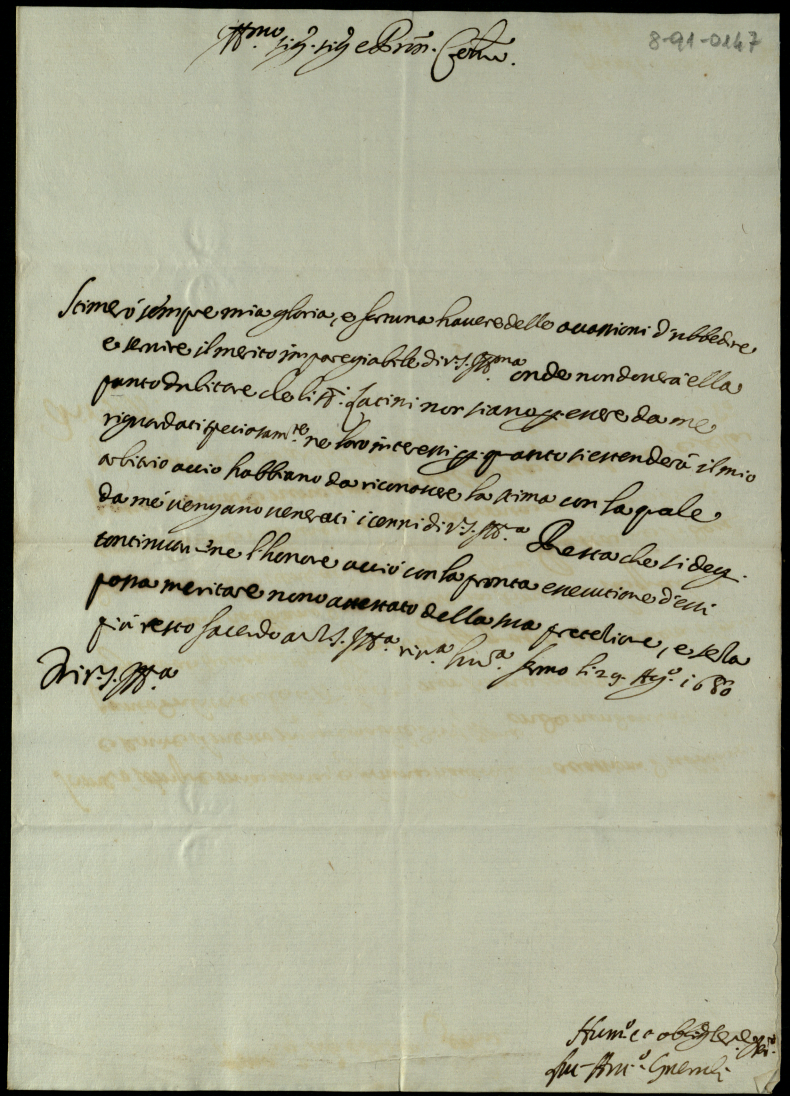 8-91-0147
Ill.mo Sig. Sig. e Prñ. Col.mo
Stimerò sempre mia gloria, e fortuna havere delle occasioni d'ubbedire
e servire il merito impareggiabile di V.S. Ill.ma onde non doverà ella
punto dubitare che li SS.i Lacini non siano p essere da me
riguardati speciosam.te ne loro interessi p quanto si estenderà il mio
arbitrio acciò habbiano da riconoscere la stima con la quale
da me vengano venerati i cenni di V.S. Ill.a Resta che si deg.
continuar-ne l'honore acciò con la pronta essecutione d'essi
possa meritare novo attestato della sua protetione, e senza
più resto facendo a V.S. Ill.a riv.a hum.a Fermo li 29 Ag.o 1680
Di V.S. Ill.a
Hum.o e obl.